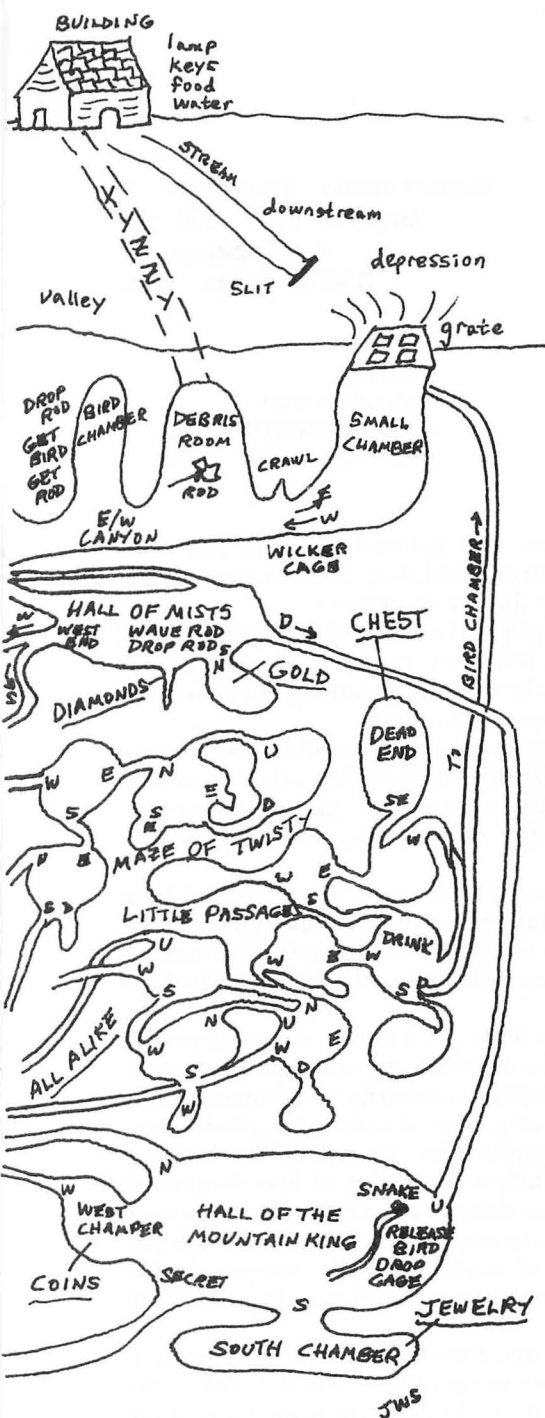 BUILDING
lamp
keys
food
water
STREAM
downstream
SLIT
XYZZY
depression
grate
valley
DROP
ROD
GET
BIRD
GET
ROD
BIRD
CHAMBER
DEBRIS
ROOM
ROD
CRAWL
SMALL
CHAMBER
E
W
E/W
CANYON
WICKER
CAGE
BIRD CHAMBER
TO
W
HALL OF MISTS
WEST
END
WAVE ROD
DROP ROD
S
N
D
CHEST
GOLD
DIAMONDS
DEAD
END
SE
W
W
E
N
U
S
E
D
S
E
MAZE OF TWISTY
W
E
S
LITTLE PASSAGES
DRINK
W
E
W
S
D
U
W
S
N
N
U
W
E
W
D
S
W
ALL ALIKE
N
W
WEST
CHAMPER
HALL OF THE
MOUNTAIN KING
SNAKE
U
RELEASE
BIRD
DROP
CAGE
COINS
SECRET
S
JEWELRY
SOUTH CHAMBER
JWS